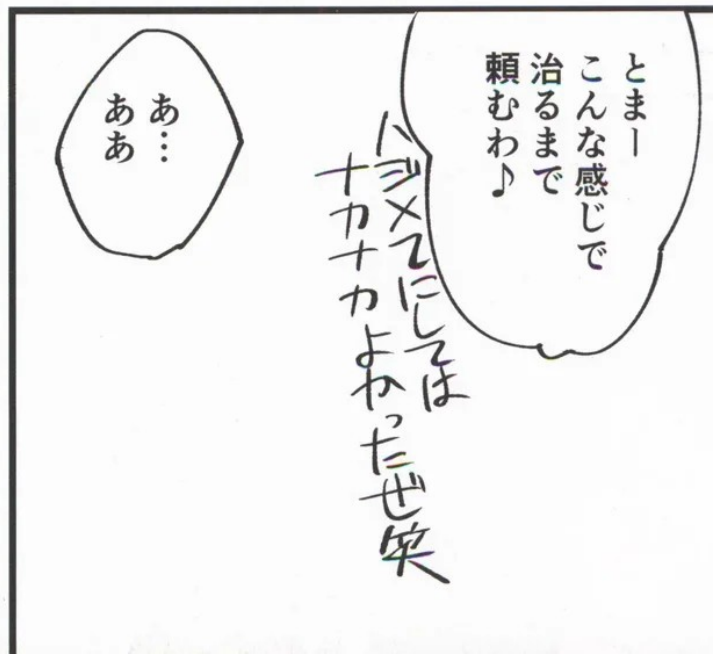 とまー
こんな感じで
治るまで
頼むわ♪
ハジメてにしては
ナカナカよかったぜ笑
あ…
ああ